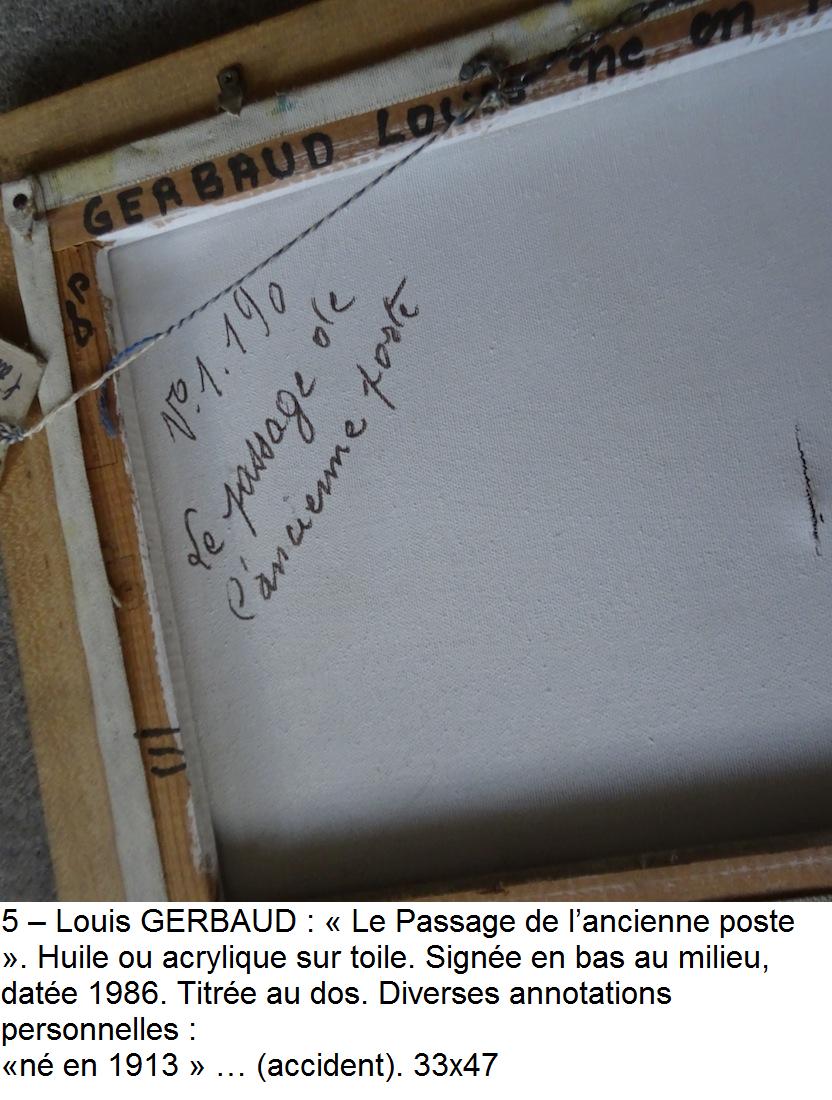 GERBAUD LOUIS né en
8P
N°.1.190
Le passage de
l'ancienne poste
III
5 – Louis GERBAUD : « Le Passage de l’ancienne poste
». Huile ou acrylique sur toile. Signée en bas au milieu,
datée 1986. Titrée au dos. Diverses annotations
personnelles :
«né en 1913 » … (accident). 33x47